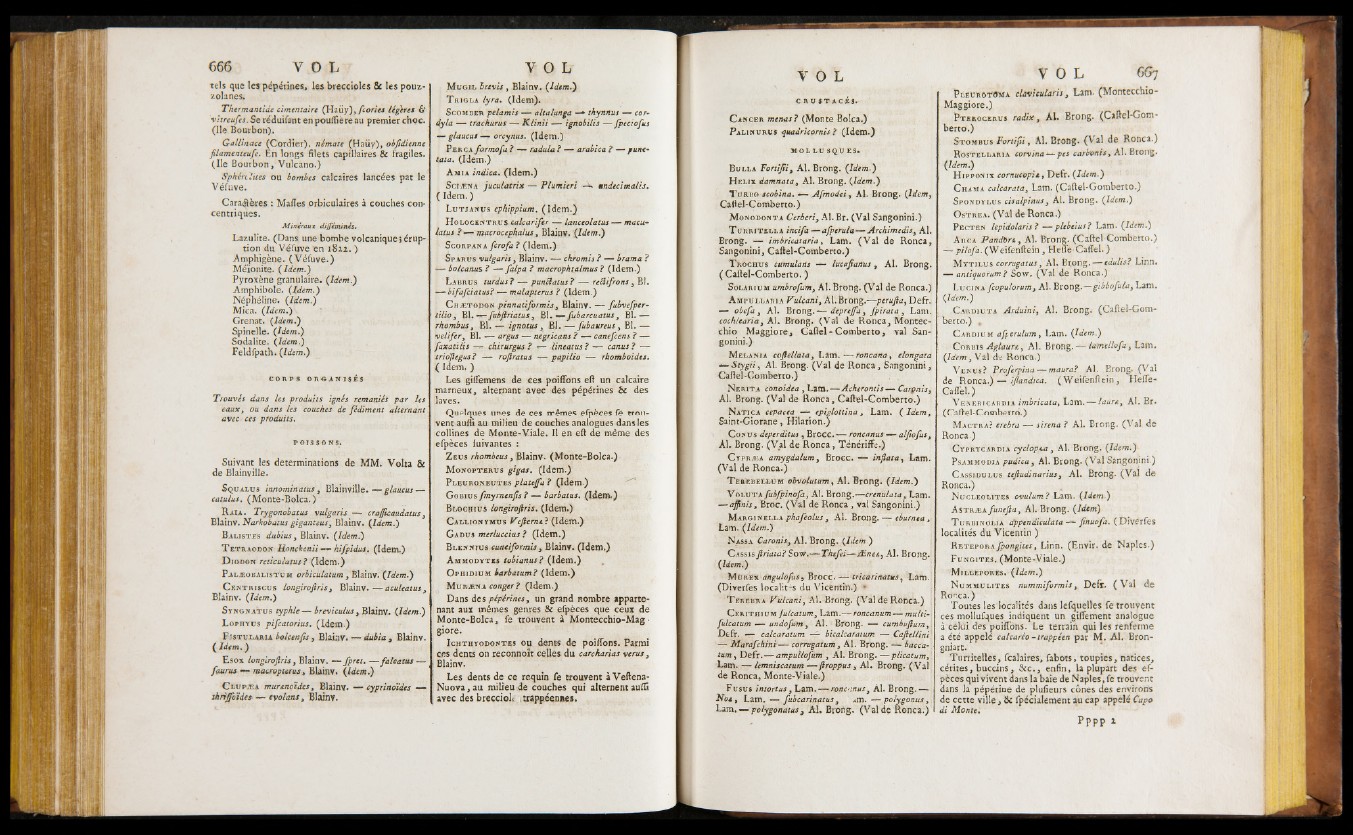 666 VOL VOL
tels que les pépérines, les breccioles & les pouz-
zolanes.
Thermantide cimentaire (Haüy), scories légères &
vitreuses. Se réduisant en poussière au premier choc.
(Ile Bourbon).
Gallinace (Cordier). némate (Haüy), obsidienne
filamenteuse. En longs filets capillaires & fragiles.
(Ile Bourbon, Vulcano.)
Sphérolites ou bombes calcaires lancées pat le
Vésuve.
Caractères : Masses orbiculaires à couches con-
centriques.
Minéraux disséminés.
Lazulite. (Dans une bombe volcanique; érup-
tion du Vésuve en 1822.)
Amphigène. (Vésuve.)
Méionite. (Idem.)
Pyroxène granulaire. (Idem.)
Amphibole. (Idem.)
Néphéline. (Idem.)
Mica. (Idem.)
Grenat. (Idem.)
Spinelle. (Idem.)
Sodalite. (Idem.)
Feldspath. (Idem.)
CORPS ORGANISÉS
Trouvés dans les produits ignés remaniés par les
eaux, ou dans les couches de sédiment alternant
avec ces produits.
POISSONS.
Suivant les determinations de MM. Volta &
de Blainville.
SQUALUS innominatus, Blainville. — glaucus —
catulus. (Monte-Bolca.)
RAIA. Trygonobatus vulgaris — crassicaudatus,
Blainv. Narkobatus giganteus, Blainv. (Idem.)
BALISTES dubius, Blainv. (Idem.)
TETRAODON Honckenii — hispidus. (Idem.)
DIODON reticulatus? (Idem.)
PALÆOBALISTUM orbiculatum, Blainv. (Idem.)
CENTRISCUS longirostris, Blainv. — aculeatus,
Blainv. (Idem.)
SYNGNATUS typhle — breviculus, Blainv. (Idem.)
LOPHYUS piscatorius. (Idem.)
FISTULARIA bolcensis, Blainv. — dubia, Blainv.
(Idem.)
ESOX longirostris, Blainv. — spret. — falcatus —
saurus — macropterus, Blainv. (Idem.)
CLUPÆA murenoïdes, Blainv. — cyprinoïdes —
thrissoïdes — evolans, Blainv.
MUGIL brevis, Blainv. (Idem.)
TRIGLA lyra. (Idem).
SCOMBER pelamis — altalunga — thynnus — cor-
dyla — trachurus — Kleinii — ignobilis — speciosus
— glaucus — orcynus. (Idem.)
PERCA formosa? — radula? — arabica? — punc-
tata. (Idem.)
AMIA indica. (Idem.)
SCIÆNA jaculatrix — Plumieri — undecimalis.
(Idem.)
LUTIANUS ephippium. (Idem.)
HOLOCENTRUS calcarifer — lanceolatus — macu-
latus? — macrocephalus, Blainv. (Idem.)
SCORPÆNA scrofa? (Idem.)
SPARUS vulgaris, Blainv. — chromis? — brama?
— bolcanus? — salpa? macrophtalmus? (Idem.)
LABRUS turdus? — punctatus? — rectifrons, Bl.
— bifasciatus? — malapterus? (Idem.)
CHÆTODON pinnatiformis, Blainv. — subvesper-
tilio, Bl. — substriatus, Bl. — subarcuatus, Bl. —
rhombus, Bl. — ignotus, Bl. — subaureus, Bl. —
velifer, Bl. — argus — negricans? — canescens? —
saxatilis — chirurgus? — lineatus? — canus? —
triostegus? — rostratus — papilio — rhomboides.
(Idem.)
Les gissemens de ces poissons est un calcaire
marneux, alternant avec des pépérines & des
laves.
Quelques unes de ces mêmes espèces se trou-
vent aussi au milieu de couches analogues dans les
collines de Monte-Viale. Il en est de même des
espèces suivantes :
ZEUS rhombeus, Blainv. (Monte-Bolca.)
MONOPTERUS gigas. (Idem.)
PLEURONEUTES platessa? (Idem.)
GOBIUS smyrnensis? — barbatus. (Idem.)
BLOCHIUS longirostris. (Idem.)
CALLIONYMUS Vestenæ? (Idem.)
GADUS merluccius? (Idem.)
BLENNIUS cuneiformis, Blainv. (Idem.)
AMMODYTES tobianus? (Idem.)
OPHIDIUM barbatum? (Idem.)
MURÆNA conger? (Idem.)
Dans des pépérines, un grand nombre apparte-
nant aux mêmes genres & espèces que ceux de
Monte-Bolca, se trouvent à Montecchio-Mag-
giore.
ICHTHYODONTES ou dents de poissons. Parmi
ces dents on reconnoît celles du carcharias verus,
Blainv.
Les dents de ce requin se trouvent à Vestena-
Nuova, au milieu de couches qui alternent aussi
avec des breccioles trappéennes.
VOL VOL 667
CRUSTACÉS.
CANCER menas? (Monte Bolca.)
PALINURUS quadricornis? (Idem.)
MOLLUSQUES.
BULLA Fortisii, Al. Brong. (Idem.)
HELIX damnata, Al. Brong. (Idem.)
TURBO scobina. — Asmodei, Al. Brong. (Idem,
Castel-Comberto.)
MONODONTA Cerberi, Al. Br. (Val Sangonini.)
TURRITELLA incisa — asperula — Archimedis, Al.
Brong. — imbricataria, Lam. (Val de Ronca,
Sangonini, Castel-Comberto.)
TROCHUS cumulans — lucasianus, Al. Brong.
(Castel-Comberto.)
SOLARIUM umbrosum, Al. Brong. (Val de Ronca.)
AMPULLARIA Vulcani, Al. Brong. — perusta, Defr.
— obesa, Al. Brong. — depressa, spirata, Lam.
cochlearia, Al. Brong. (Val de Ronca, Montec-
chio Maggiore, Castel-Comberto, val San-
gonini.)
MELANIA costellata, Lam. — roncana, elongata
— Stygii, Al. Brong. (Val de Ronca, Sangonini,
Castel-Gomberto.)
NERITA conoidea, Lam. — Acherontis — Caronis,
Al. Brong. (Val de Ronca, Castel-Comberto.)
NATICA cepacea — epiglottina, Lam. (Idem,
Saint-Giorane, Hilarion.)
CONUS deperditus, Brocc. — roncanus — alsiosus,
Al. Brong. (Val de Ronca, Ténériffe.)
CYPRÆA amygdalum, Brocc. — inflata, Lam.
(Val de Ronca.)
TEREBELLUM obvolutum, Al. Brong. (Idem.)
VOLUTA subspinosa, Al. Brong. — crenulata, Lam.
— affinis, Broc. (Val de Ronca, val Sangonini.)
MARGINELLA phaseolus, Al. Brong. — eburnea,
Lam. (Idem.)
NASSA Caronis, Al. Brong. (Idem)
CASSIS striata? Sow. — Thesei — Æneæ, Al. Brong.
(Idem.)
MUREX angulosus, Brocc. — tricarinatus, Lam.
(Diverses localités du Vicentin.)
TEREBRA Vulcani, Al. Brong. (Val de Ronca.)
CERITHIUM sulcatum, Lam. — roncanum — multi-
sulcatum — undosum, Al. Brong. — combustum,
Defr. — calcaratum — bicalcaratum — Castellini
— Maraschini — corrugatum, Al. Brong. — bacca-
tum, Defr. — ampullosum, Al. Brong. — plicatum,
Lam. — lemniscatum — stroppus, Al. Brong. (Val
de Ronca, Monte-Viale.)
FUSUS intortus, Lam. — roncanus, Al. Brong. —
Noæ, Lam. — subcarinatus, Lam. — polygonus,
Lam. — polygonatus, Al. Brong. (Val de Ronca.)
PLEUROTOMA clavicularis, Lam. (Montecchio-
Maggiore.)
PTEROCERUS radix, Al. Brong. (Castel-Gom-
berto.)
STOMBUS Fortisii, Al. Brong. (Val de Ronca.)
ROSTELLARIA corvina — pes carbonis, Al. Brong.
(Idem.)
HIPPONIX cornucopiæ, Defr. (Idem.)
CHAMA calcarata, Lam. (Castel-Gomberto.)
SPONDYLUS cisalpinus, Al. Brong. (Idem.)
OSTREA. (Val de Ronca.)
PECTEN lepidolaris? — plebeius? Lam. (Idem.)
ARCA Pandoræ, Al. Brong. (Castel-Comberto.)
— pilosa. (Weissenstein, Hesse-Cassel.)
MYTILUS corrugatus, Al. Brong. — edulis? Linn.
— antiquorum? Sow. (Val de Ronca.)
LUCINA scopulorum, Al. Brong. — gibbosula, Lam.
(Idem.)
CARDIUTA Arduini, Al. Brong. (Castel-Gom-
berto.)
CARDIUM asperulum, Lam. (Idem.)
CORBIS Aglauræ, Al. Brong. — lamellosa, Lam.
(Idem, Val de Ronca.)
VENUS? Proserpina — maura? Al. Brong. (Val
de Ronca.) — islandica. (Weissenstein, Hesse-
Cassel.)
VENERICARDIA imbricata, Lam. — lauræ, Al. Br.
(Castel-Comberto.)
MACTRA? erebea — sirena? Al. Brong. (Val de
Ronca)
CYPRYCARDIA cyclopea, Al. Brong. (Idem.)
PSAMMODIA pudica, Al. Brong. (Val Sangonini.)
CASSIDULUS testudinarius, Al. Brong. (Val de
Ronca.)
NUCLEOLITES ovulum? Lam. (Idem.)
ASTRÆA funesta, Al. Brong. (Idem)
TURBINOLIA appendiculata — sinuosa. (Diverses
localités du Vicentin)
RETEPORA spongites, Linn. (Envir. de Naples.)
FUNGITES. (Monte-Viale.)
MILLEPORES. (Idem.)
NUMMULITES nummiformis, Defr. (Val de
Ronca.)
Toutes les localités dans lesquelles se trouvent
ces mollusques indiquent un gissement analogue
à celui des poissons. Le terrain qui les renferme
a été appelé calcaréo-trappéen par M. Al. Bron-
gniart.
Turritelles, scalaires, sabots, toupies, natices,
cérites, buccins, &c., enfin, la plupart des es-
pèces qui vivent dans la baie de Naples, se trouvent
dans la pépérine de plusieurs cônes des environs
de cette ville, & spécialement au cap appelé Capo
di Monte.
Pppp 2